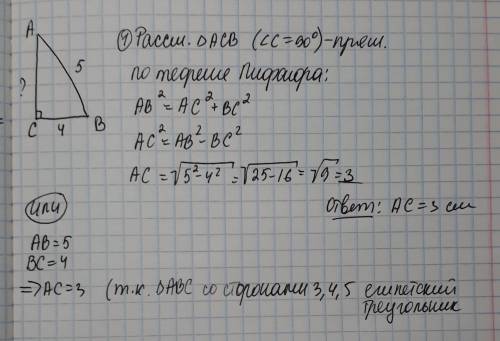 A
5
?
C
4
B
① Рассм. ΔACB (∠C=90°)-прям.
по теореме Пифагора:
AB² = AC² + BC²
AC² = AB² - BC²
AC = √5²-4² = √25-16 = √9 = 3
Ответ: AC=3 см
или
AB=5
BC=4
⇒ AC=3 (т.к. ΔABC со сторонами 3,4,5 египетский
треугольник